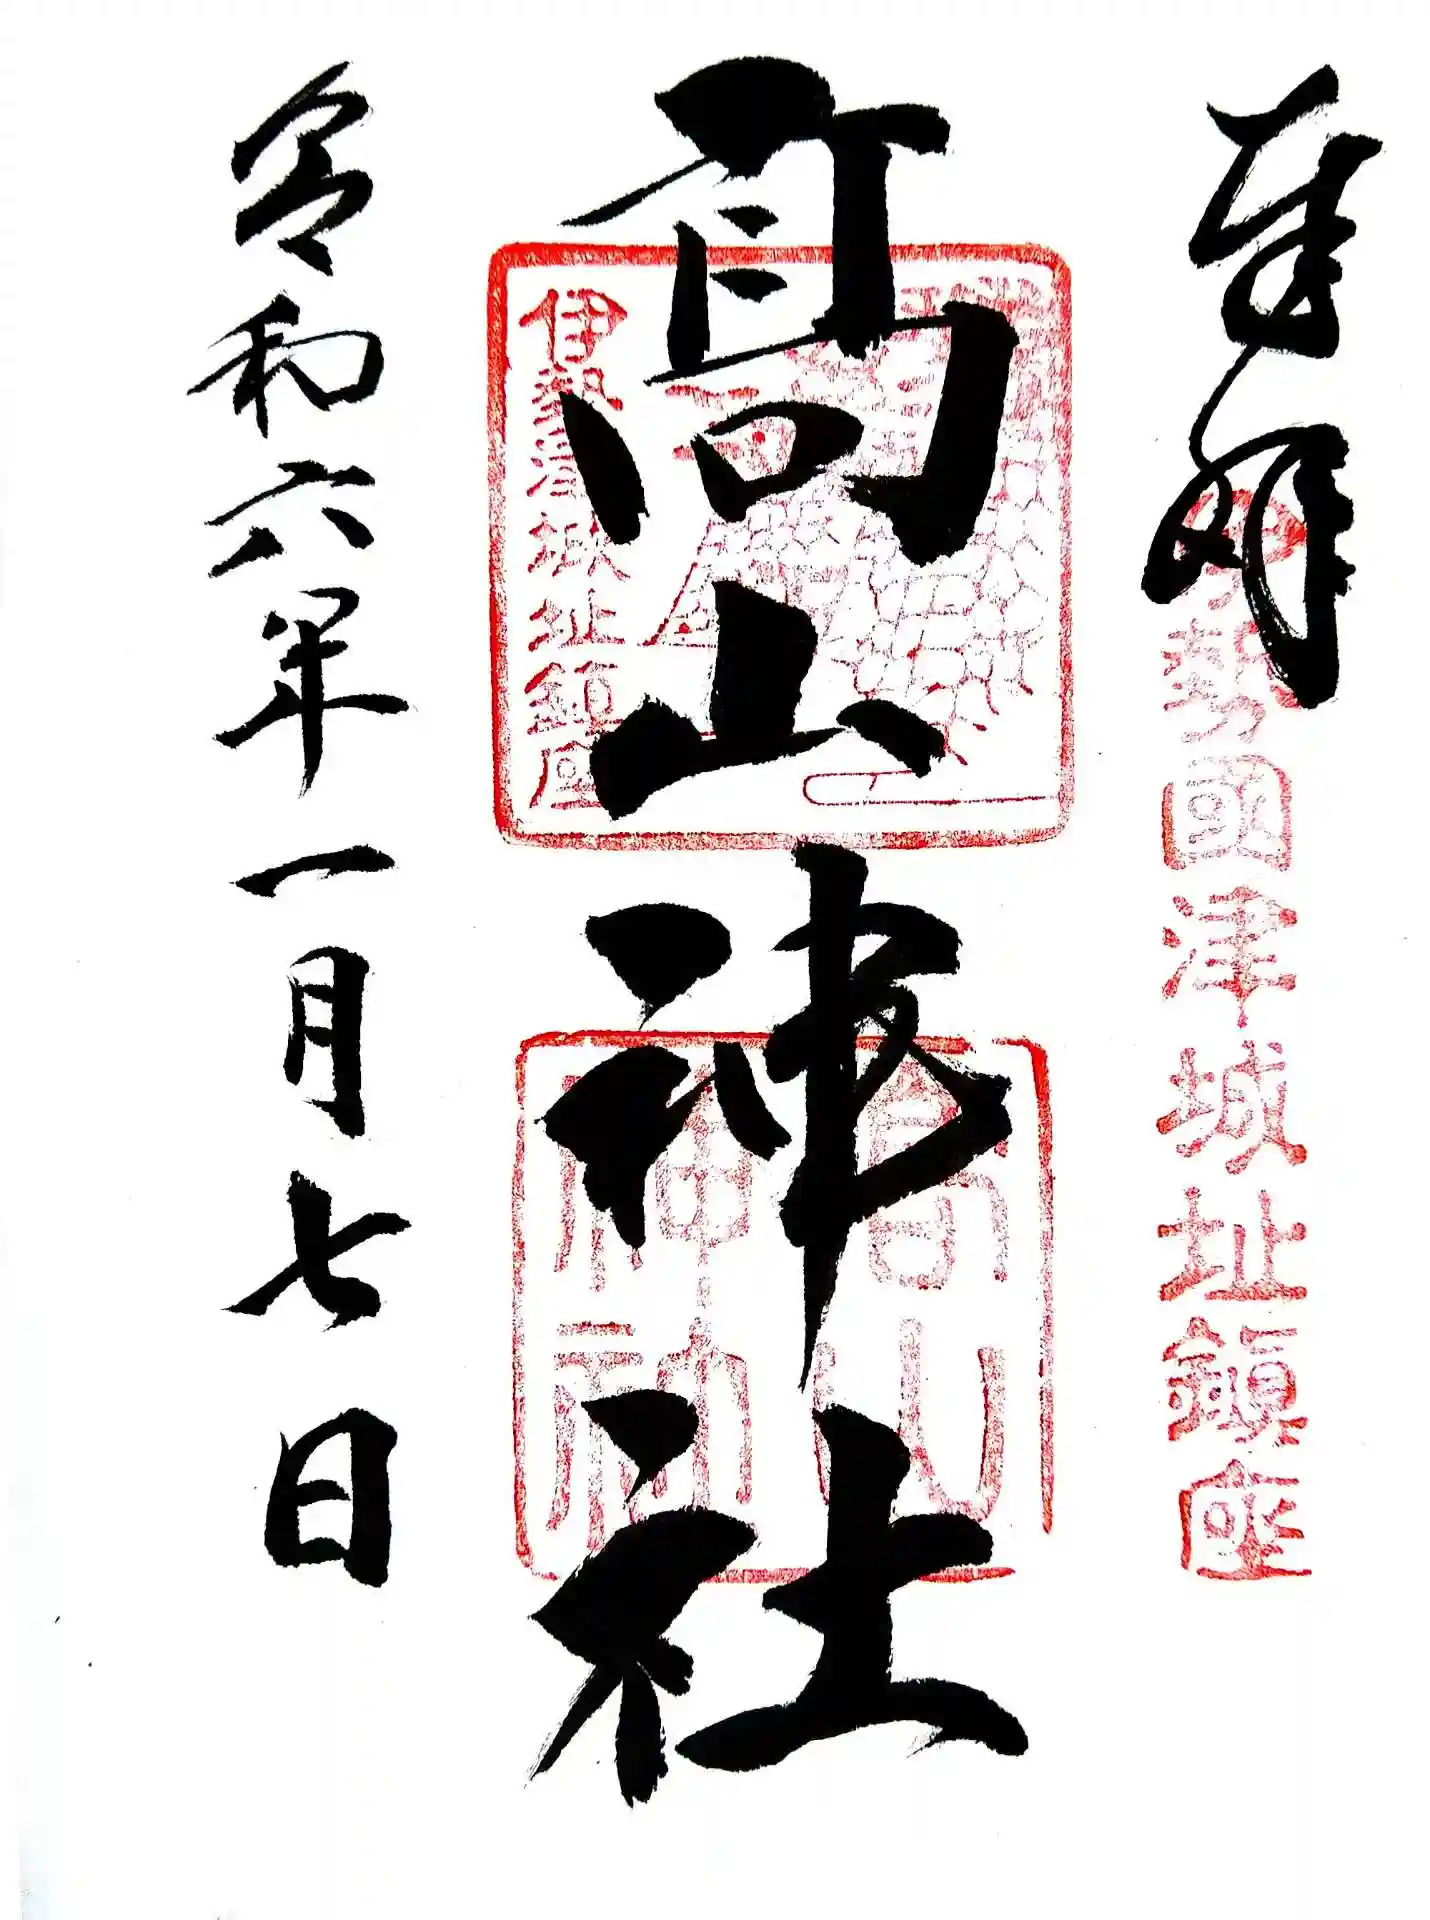 奉拝
伊勢國津城址鎮座
髙山神社
伊勢津城址鎮座
高山
神社
令和六年一月七日